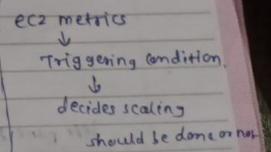 ec2 metrics
↓
Triggering Condition.
↓
decides scaling
should be done or not